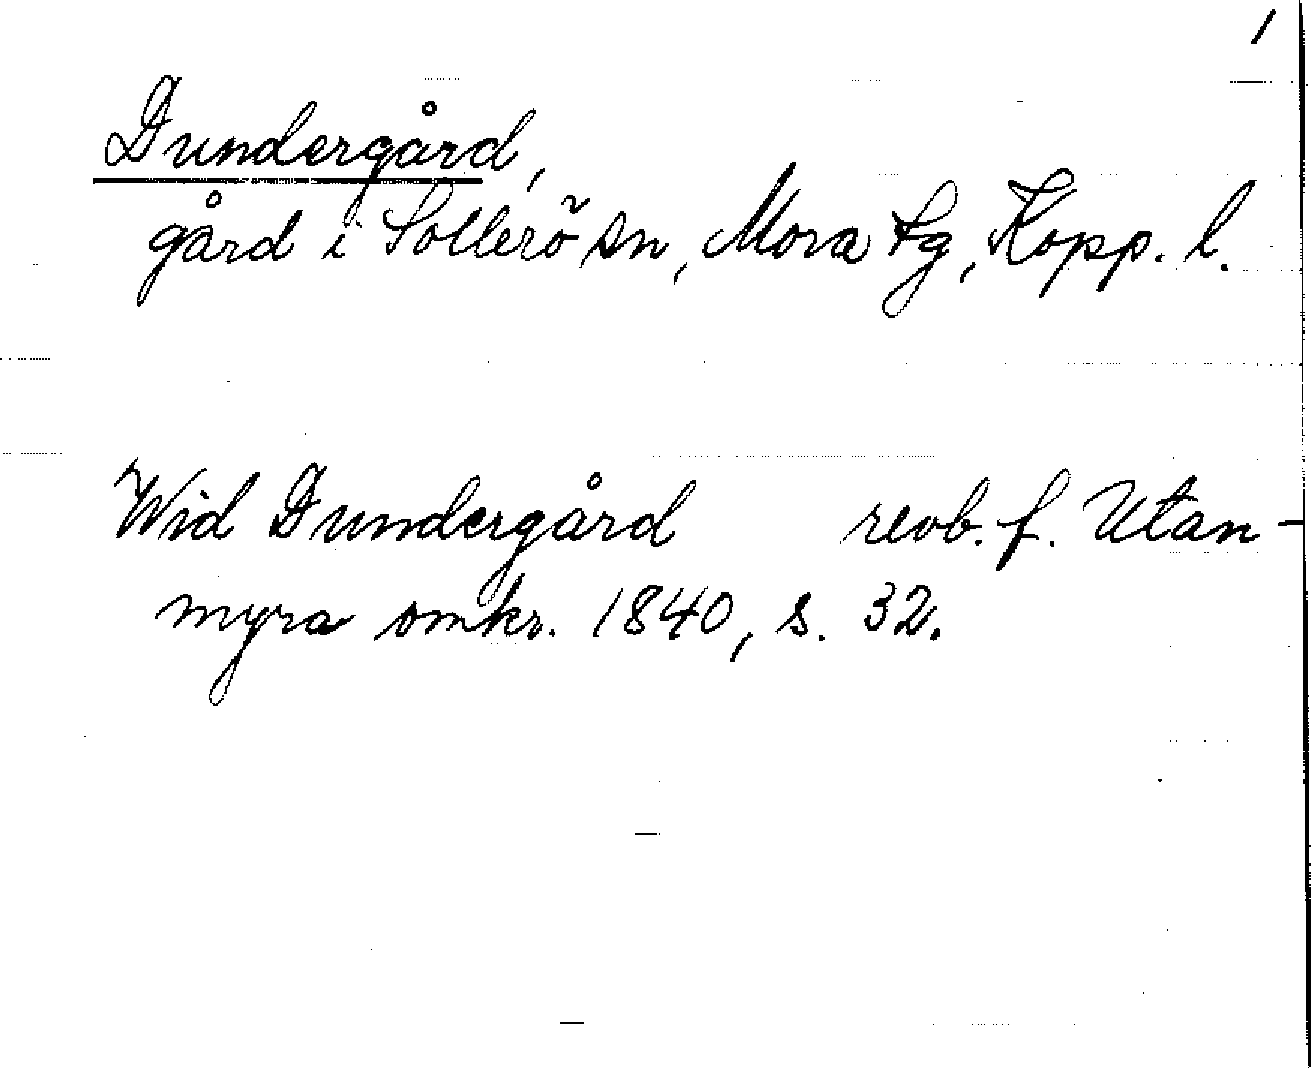 1
Dundergård,
gård i Sollerö sn, Mora tg, Kopp. l.
Wid Dundergård revb. f. Utan-
myra omkr. 1840, s. 32.